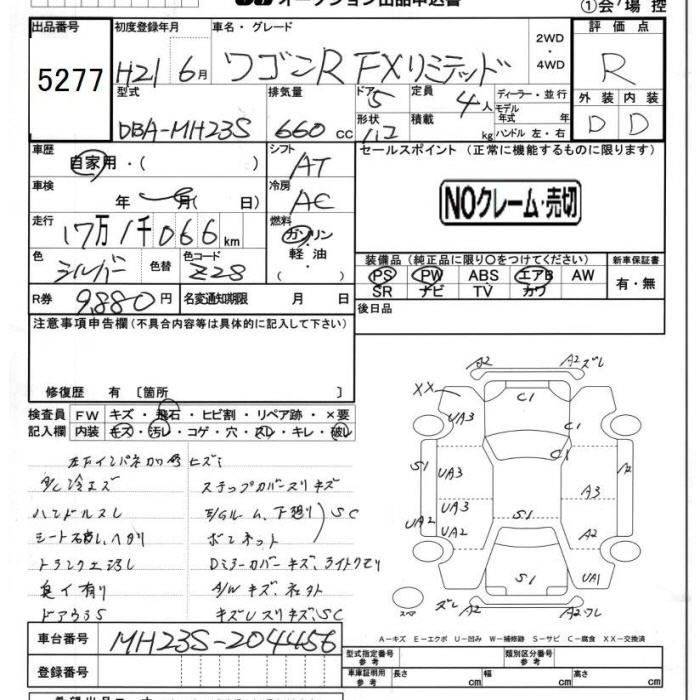 オークション出品申込書
①会場控
出品番号 初度登録年月 車名・グレード 2WD・4WD 評価点
5277 H21 6月 ワゴンR FXリミテッド R
型式 排気量 ドア 5 定員 4人 ディーラー・並行 外装 内装
DBA-MH23S 660cc 形状 積載 kg モデル年式 年 ハンドル 左・右 D D
車歴 自家用・( ) シフト AT セールスポイント (正常に機能するものに限ります)
車検 年 月( 日) 冷房 AC NOクレーム・売切
走行 17万1千066km 燃料 ガソリン・軽油・( )
色 シルバー 色替 色コード Z2S 装備品 (純正品に限り〇をつけてください) 新車保証書
PS PW ABS エアB AW 有・無
SR ナビ TV カワ
R券 9,880円 名変通知期限 月 日 後日品
注意事項申告欄 (不具合内容等は具体的に記入して下さい)
修復歴 有 〔箇所 〕
検査員 FW キズ・飛石・ヒビ割・リペア跡・×要
記入欄 内装 キズ・汚レ・コゲ・穴・スレ・キレ・破レ
ハンドルスレ
ステップカバースリキズ
E/Gルーム、下廻り SC
トランク汚レ
ボンネット
臭イ有り
A2 A2 ズレ
XX C1
UA3 C1
S1 UA3 A3
UA2 UA3 S1 A2
UA2
S1 UA1
スペア ズレ A2 A2 ワレ
A−キズ E−エクボ U−凹み W−補修跡 S−サビ C−腐食 XX−交換済
車台番号 MH23S-204456
型式指定番号 参考 類別区分番号 参考
登録番号 車庫証明用 参考 長さ 幅 高さ cm cm cm